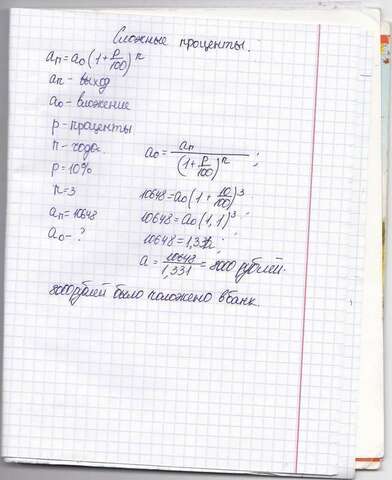 Сложные проценты.
aₙ = a₀(1+P/100)ⁿ
aₙ - выход
a₀ - вложение
p - проценты
n - годы.
p = 10%
n = 3
aₙ = 10648
a₀ - ?
a₀ = aₙ/(1+P/100)ⁿ ;
10648 = a₀(1+10/100)³
10648 = a₀(1,1)³
10648 = 1,331
a = 10648/1,331 = 8000 рублей.
8000 рублей было положено в банк